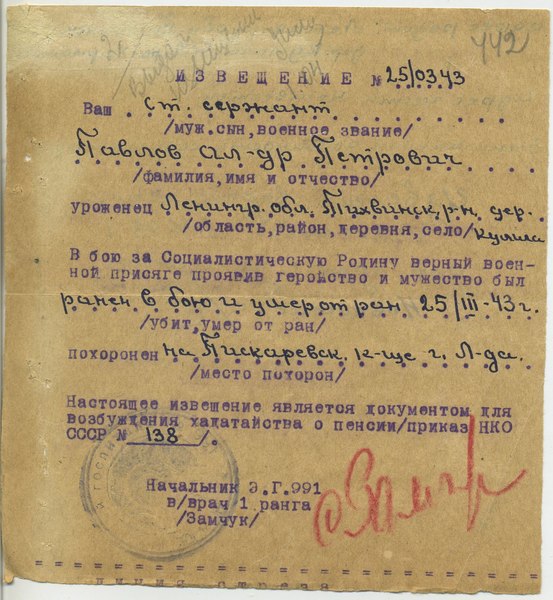 442
ИЗВЕЩЕНИЕ № 25/03 43
Ваш ст. сержант
/муж.сын,военное звание/
Павлов Ал-др Петрович
/фамилия,имя и отчество/
уроженец Ленингр. обл. Тихвинск. р-н. дер.
/область,район,деревня,село/
В бою за Социалистическую Родину верный воен-
ной присяге проявив геройство и мужество был
ранен в бою и умер от ран 25/III-43 г.
/убит,умер от ран/
похоронен на Пискаревск. к-ще г. Л-да.
/место похорон/
Настоящее извешение является документом для
возбуждения хадатайства о пенсии/приказ НКО
СССР № 138 /.
Начальник Э.Г.991
в/врач 1 ранга
/Замчук/
линия отреза